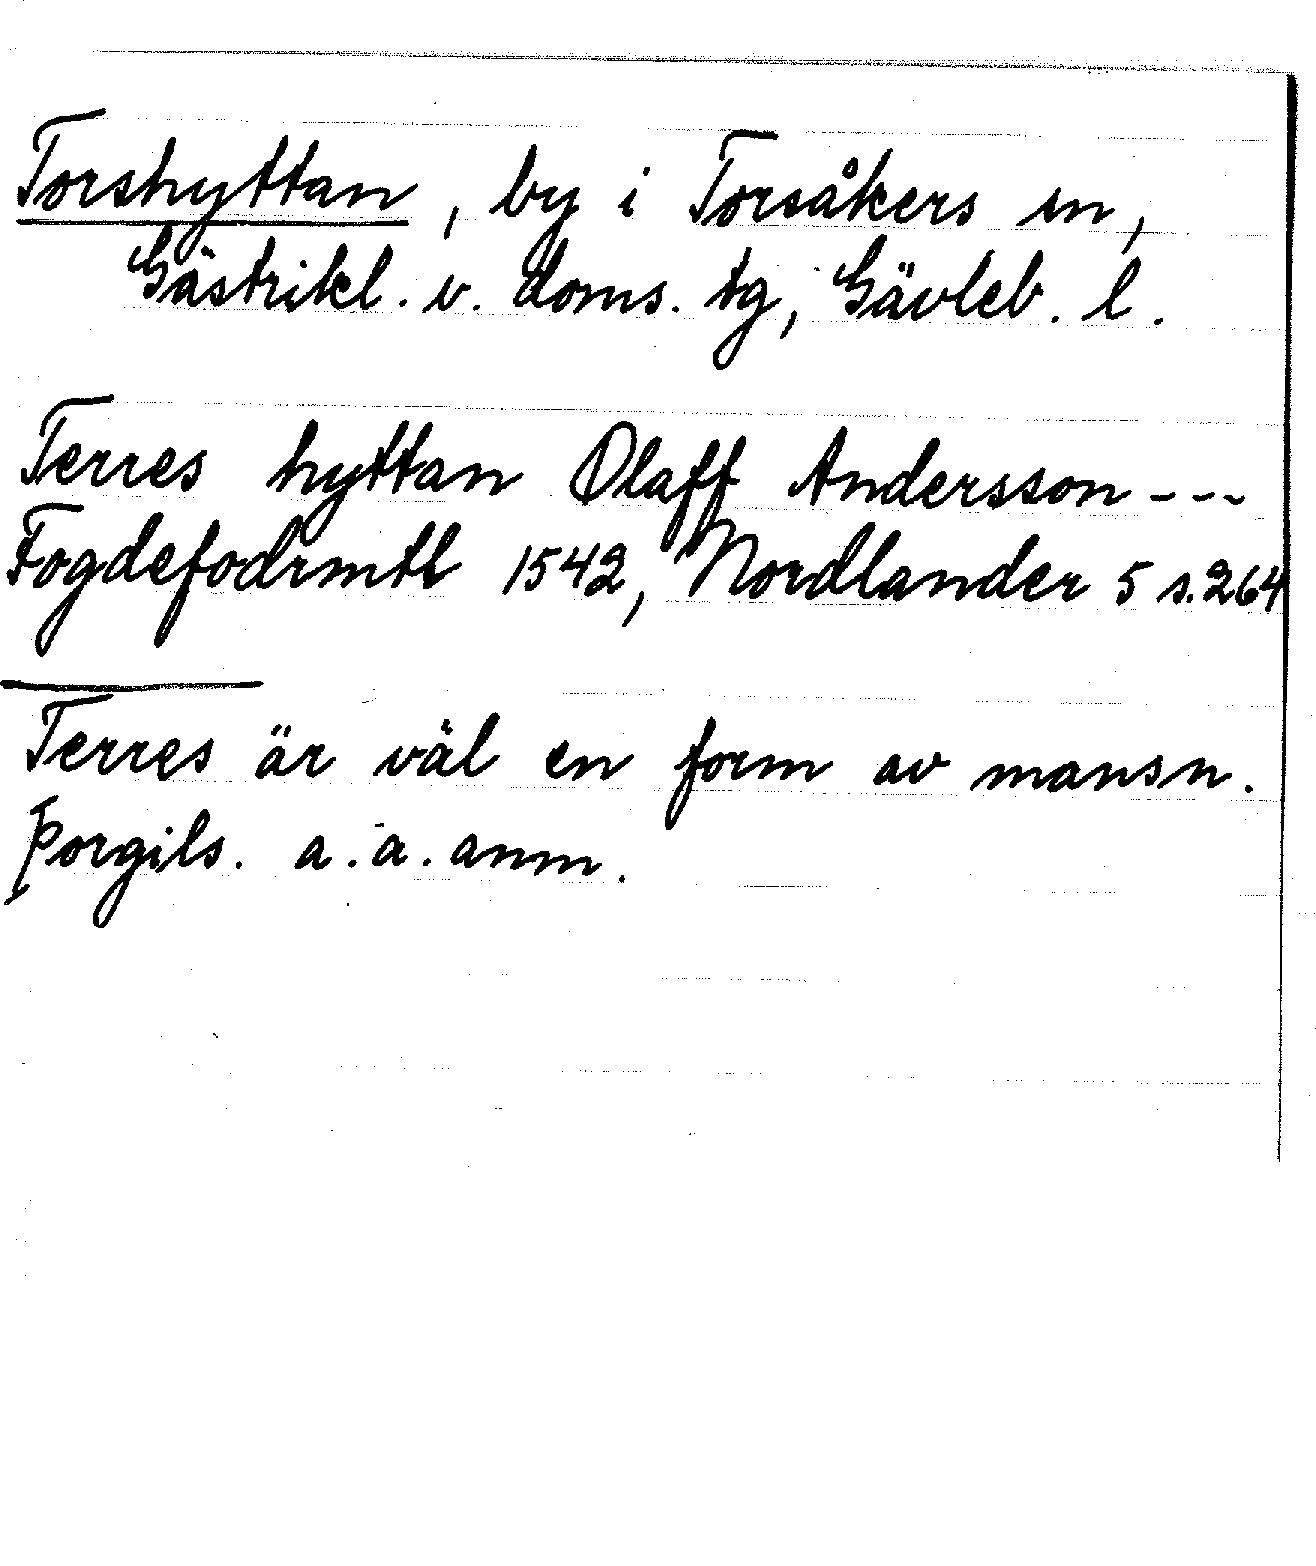 Torshyttan, by i Torsåkers sn,
Gästrikl. v. doms. tg, Gävleb. l.
Terres hyttan Olaff Andersson ---
Fogdefodrmtl 1542, Nordlander 5 s. 264
Terres är väl en form av mansn.
Þorgils. a. a. anm.